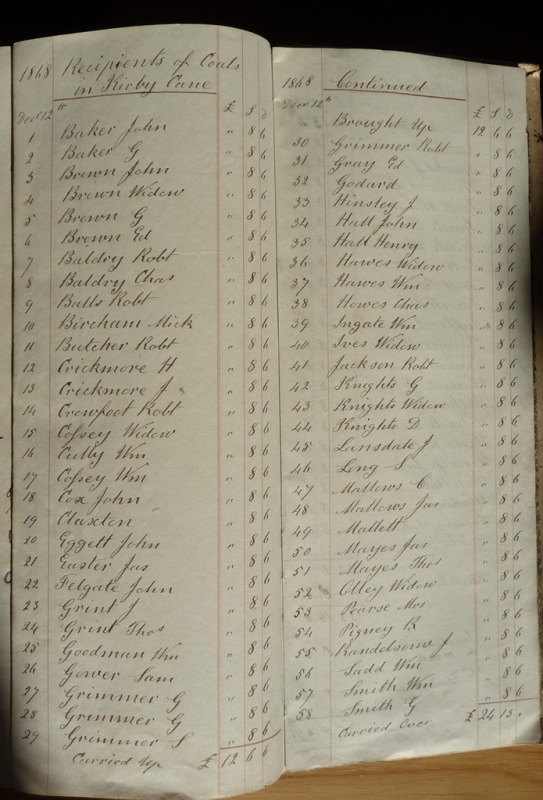 1868 Recipients of Coals
in Kirby Cane
Decr 12th £ s d
1 Baker John " 8 6
2 Baker G " 8 6
3 Brown John " 8 6
4 Brown Widow " 8 6
5 Brown G " 8 6
6 Brown Ed " 8 6
7 Baldry Robt " 8 6
8 Baldry Chas " 8 6
9 Balls Robt " 8 6
10 Bircham Mick " 8 6
11 Butcher Robt " 8 6
12 Crickmore H " 8 6
13 Crickmore J " 8 6
14 Crowfoot Robt " 8 6
15 Copsey Widow " 8 6
16 Cully Wm " 8 6
17 Copsey Wm " 8 6
18 Cox John " 8 6
19 Claxton " 8 6
20 Eggett John " 8 6
21 Easter Jas " 8 6
22 Felgate John " 8 6
23 Grint J " 8 6
24 Grint Thos " 8 6
25 Goodman Wm " 8 6
26 Gower Sam " 8 6
27 Grimmer G " 8 6
28 Grimmer G " 8 6
29 Grimmer S " 8 6
Carried Up £ 12 6 6
1868 Continued
Decr 12th £ s d
Brought Up 12 6 6
30 Grimmer Robt " 8 6
31 Gray Ed " 8 6
32 Godard " 8 6
33 Hinsley J " 8 6
34 Hall John " 8 6
35 Hall Henry " 8 6
36 Hawes Widow " 8 6
37 Hawes Wm " 8 6
38 Howes Chas " 8 6
39 Ingate Wm " 8 6
40 Ives Widow " 8 6
41 Jackson Robt " 8 6
42 Knights G " 8 6
43 Knights Widow " 8 6
44 Knights D " 8 6
45 Lansdale J " 8 6
46 Long S " 8 6
47 Mallows C " 8 6
48 Mallows Jas " 8 6
49 Mallett " 8 6
50 Mayes Jas " 8 6
51 Mayes Thos " 8 6
52 Olley Widow " 8 6
53 Pearse Mos " 8 6
54 Pigney R " 8 6
55 Randelsome J " 8 6
56 Sadd Wm " 8 6
57 Smith Wm " 8 6
58 Smith G " 8 6
Carried Over £ 24 13 "